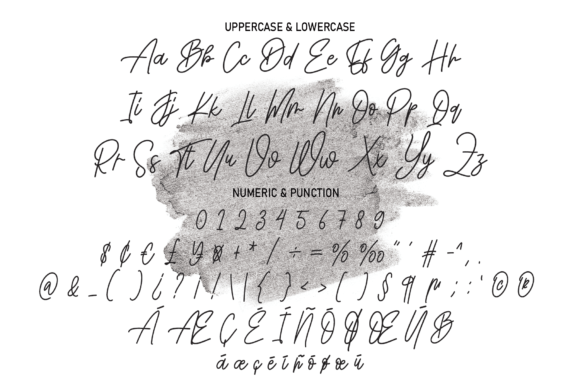 UPPERCASE & LOWERCASE
Aa Bb Cc Dd Ee Ff Gg Hh
Ii Jj Kk Ll Mm Nn Oo Pp Qq
Rr Ss Tt Uu Vv Ww Xx Yy Zz
NUMERIC & PUNCTION
0 1 2 3 4 5 6 7 8 9
$ ¢ € £ ¥ ¤ + * / ÷ = % ‰ " ' # - ^ , .
@ & _ ( ) ¿ ? ¡ / \ | { } < > ( ) § ¶ µ ; : ' © ®
Á Æ Ç É Í Ñ Ó Ø Œ Ú ß
á æ ç é í ñ ó ø œ ú